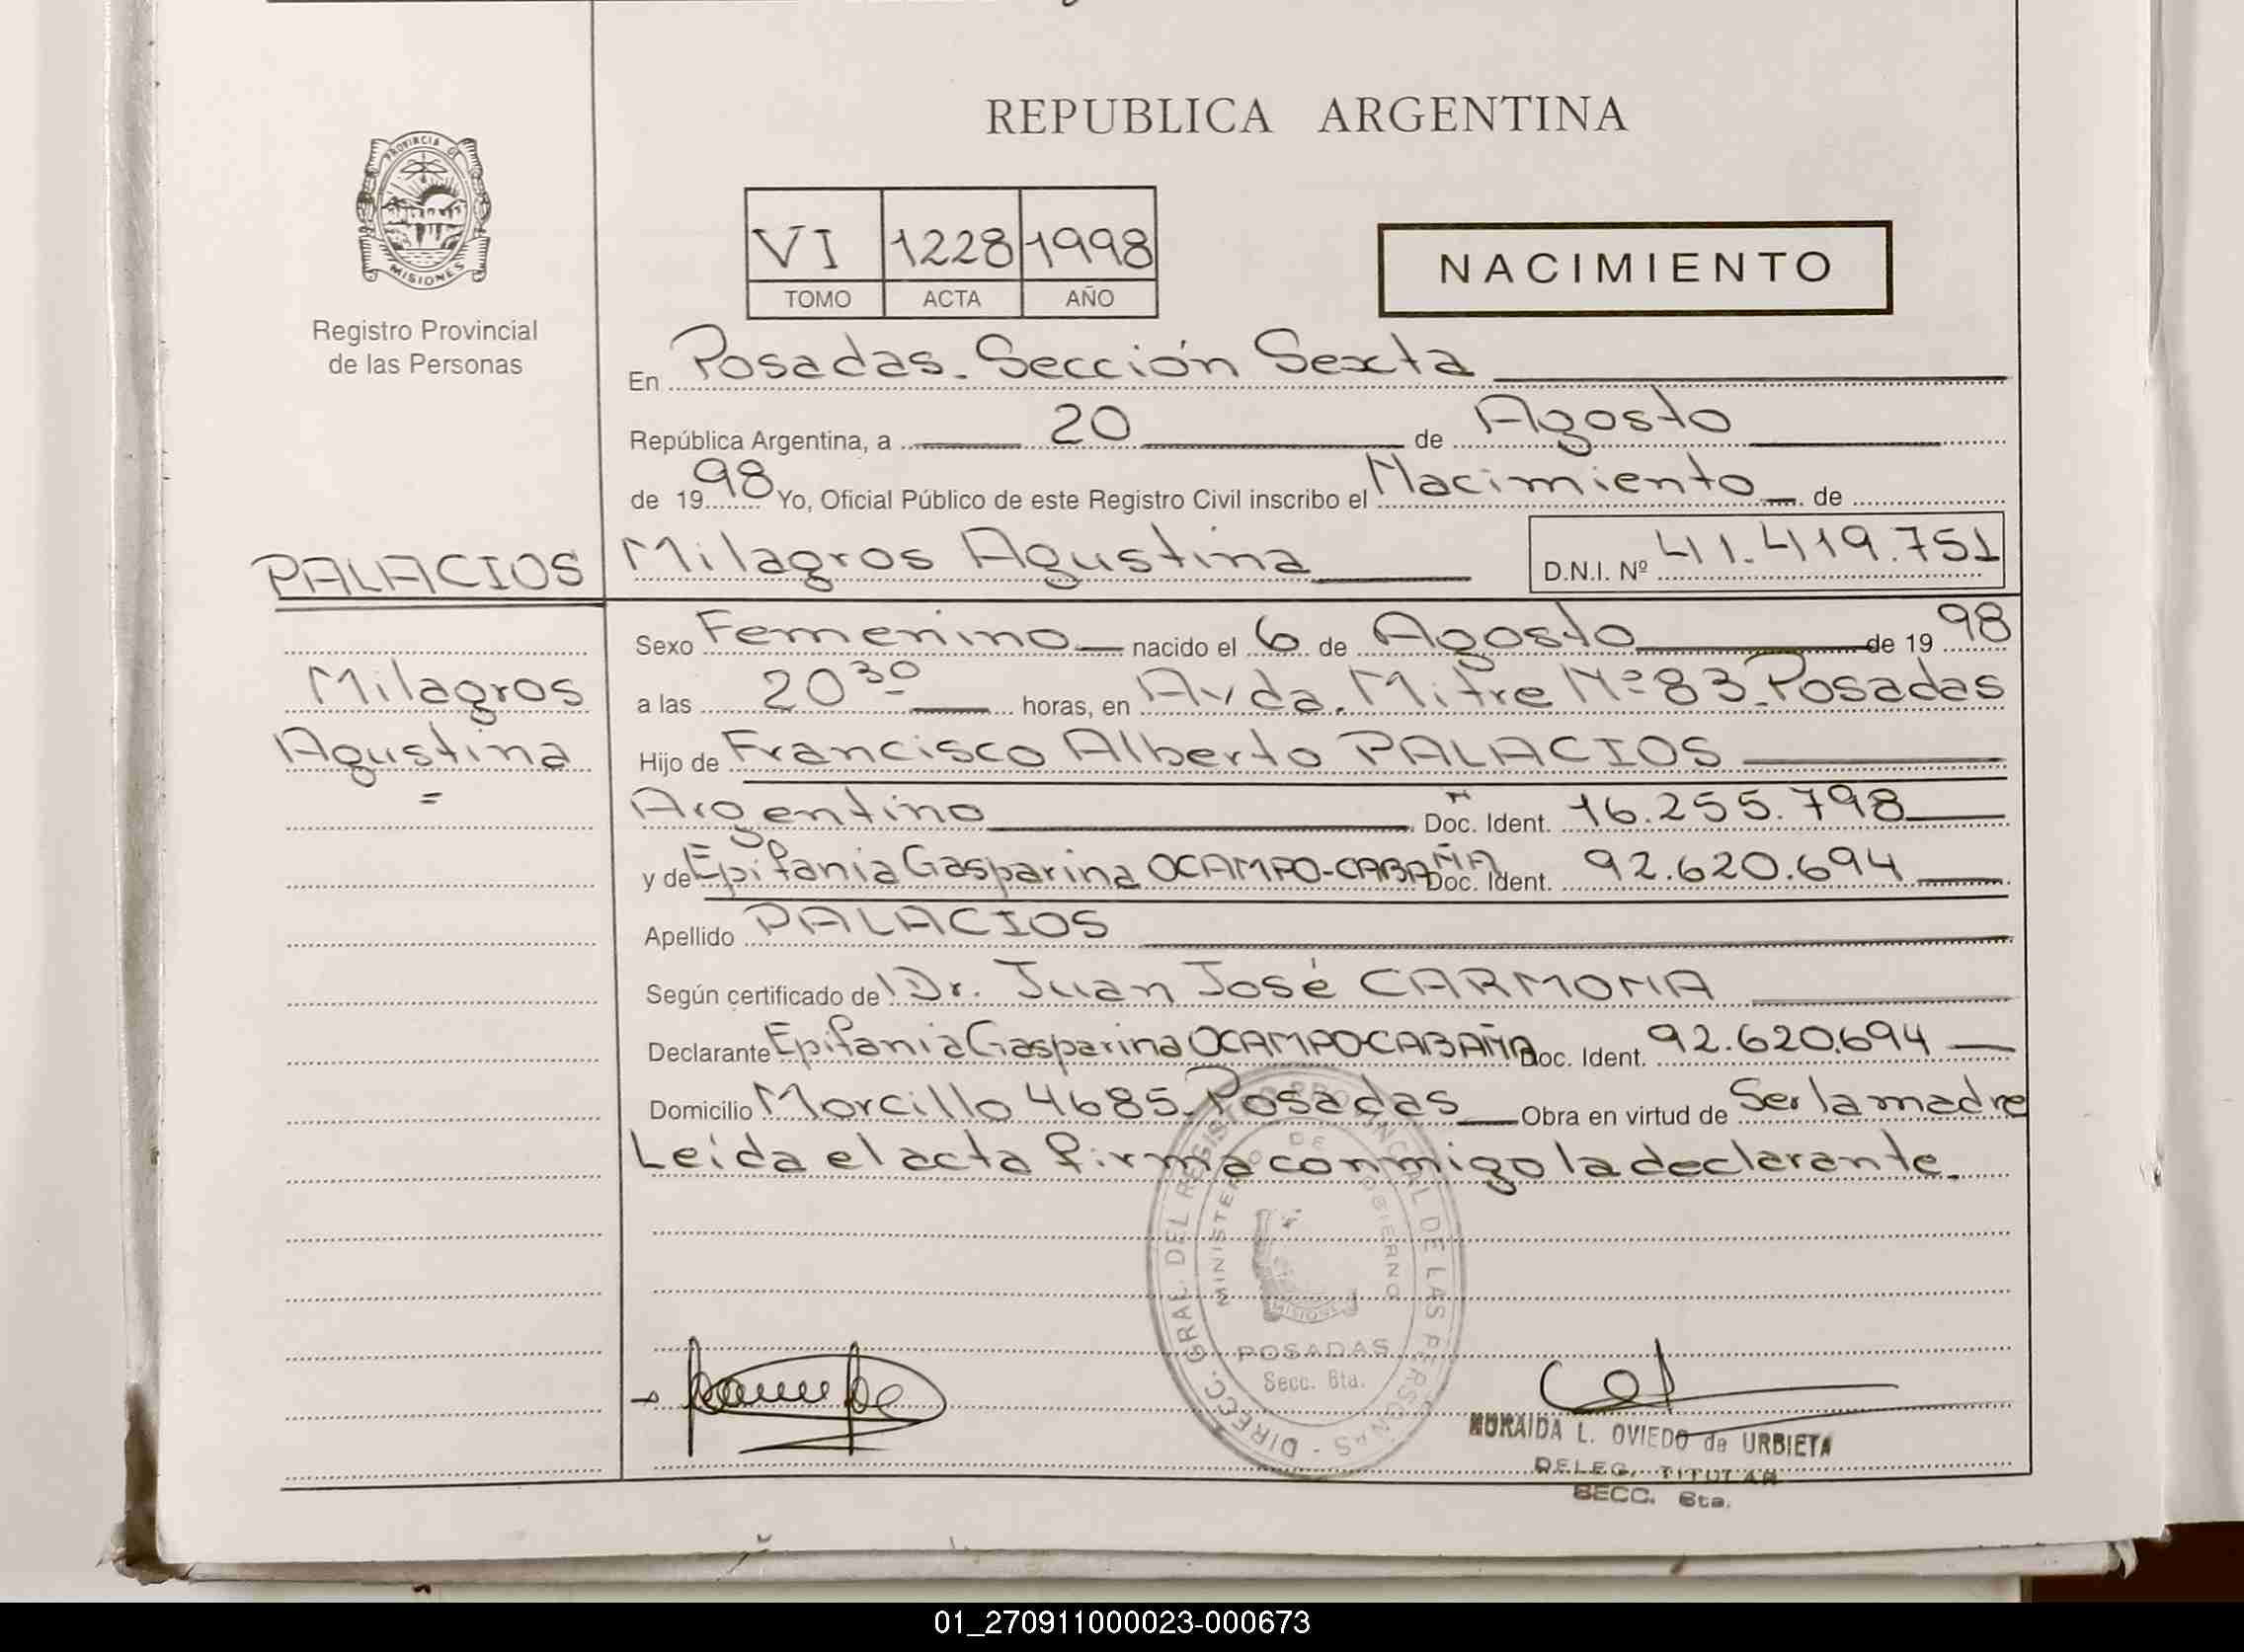 REPUBLICA ARGENTINA
PROVINCIA DE
MISIONES
Registro Provincial
de las Personas
VI 1228 1998
TOMO ACTA AÑO
NACIMIENTO
En Posadas. Sección Sexta
República Argentina, a 20 de Agosto
de 1998 Yo, Oficial Público de este Registro Civil inscribo el Nacimiento de
PALACIOS Milagros Agustina D.N.I. Nº 41.419.751
Sexo Femenino nacido el 6 de Agosto de 1998
Milagros
a las 20³⁰ horas, en Avda. Mitre Nº 83 - Posadas
Agustina
Hijo de Francisco Alberto PALACIOS
Argentino Doc. Ident. 16.255.798
y de Epifania Gasparina OCAMPO-CABAÑA Doc. Ident. 92.620.694
Apellido PALACIOS
Según certificado de Dr. Juan José CARMONA
Declarante Epifania Gasparina OCAMPO CABAÑA Doc. Ident. 92.620.694
Domicilio Morcillo 4685 - Posadas Obra en virtud de Ser la madre
Leída el acta firma conmigo la declarante.
DIRECC. GRAL. DEL REGISTRO PROVINCIAL DE LAS PERSONAS -
MINISTERIO DE GOBIERNO
MISIONES
POSADAS
Secc. 6ta.
NORAIDA L. OVIEDO de URBIETA
DELEG. TITULAR
SECC. 6ta.
01_270911000023-000673